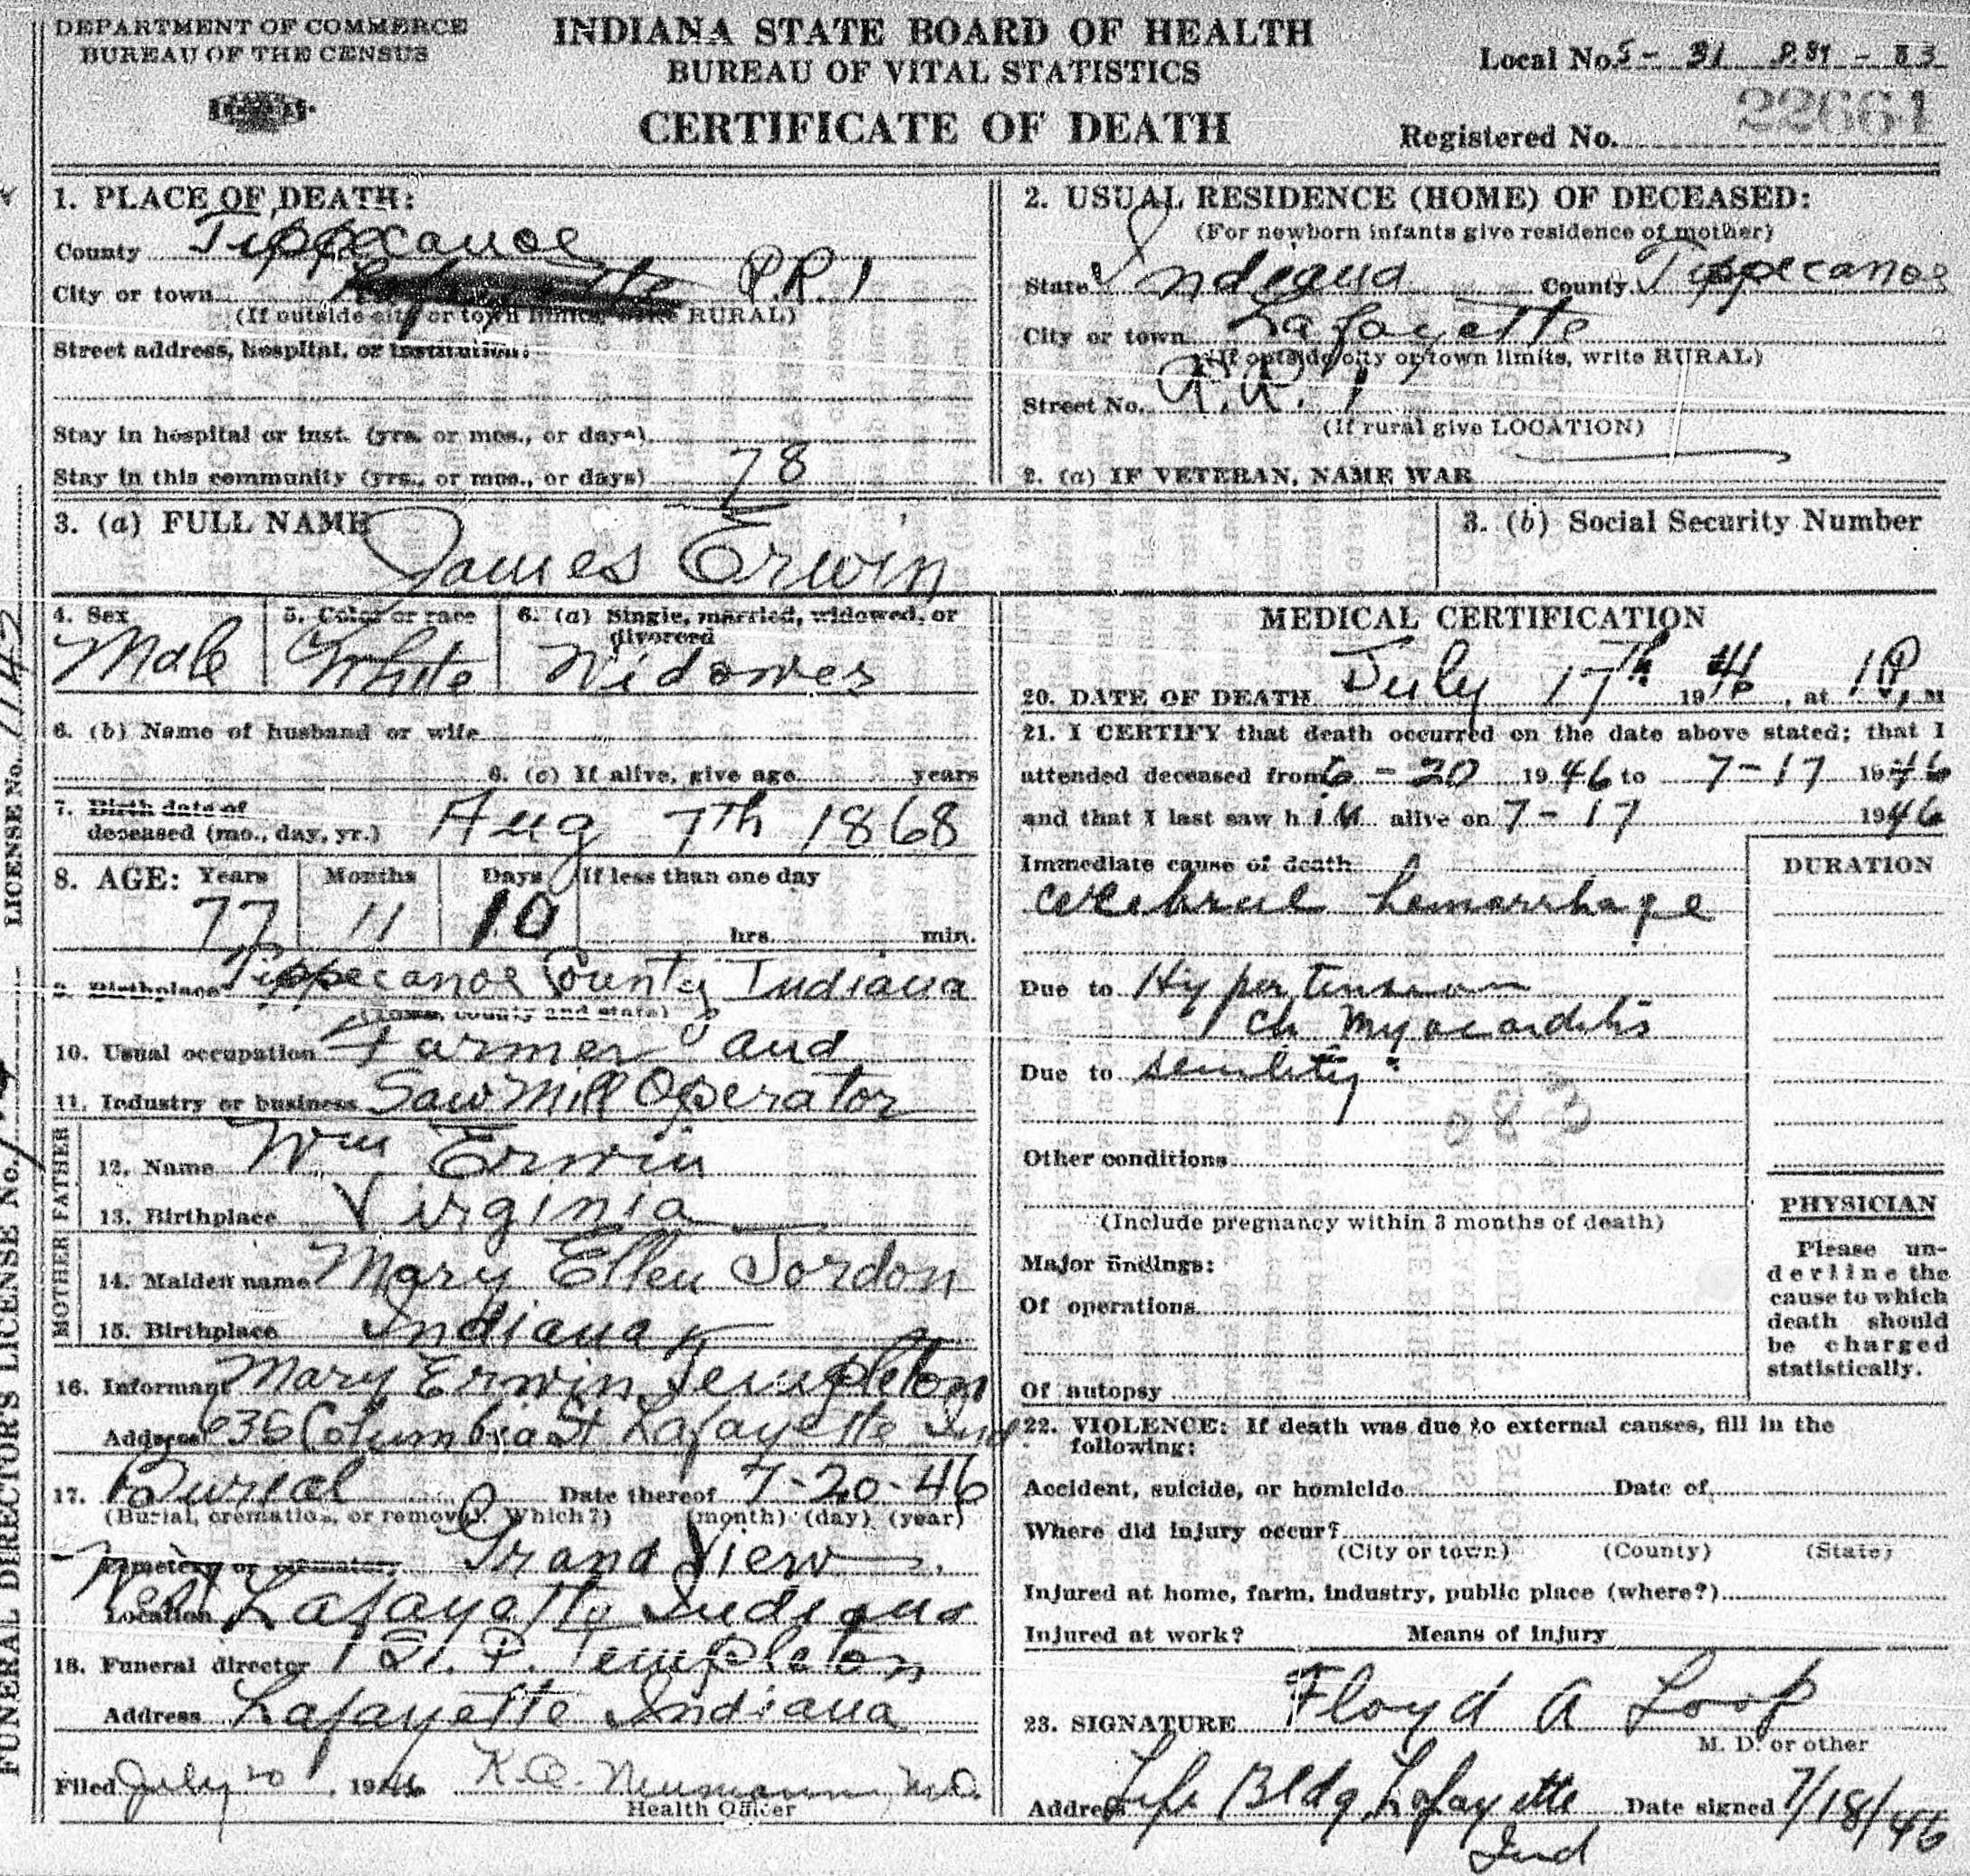 DEPARTMENT OF COMMERCE
BUREAU OF THE CENSUS
INDIANA STATE BOARD OF HEALTH
BUREAU OF VITAL STATISTICS
CERTIFICATE OF DEATH
Local No.
Registered No. 22661
1. PLACE OF DEATH:
County Tippecanoe
City or town R.R. 1
(If outside city or town limits, write RURAL)
Street address, hospital, or institution:
Stay in hospital or inst. (yrs. or mos., or days)
Stay in this community (yrs., or mos., or days) 78
2. USUAL RESIDENCE (HOME) OF DECEASED:
(For newborn infants give residence of mother)
State Indiana County Tippecanoe
City or town Lafayette
(If outside city or town limits, write RURAL)
Street No. R.R. 1
(If rural give LOCATION)
2. (a) IF VETERAN, NAME WAR
3. (a) FULL NAME James Erwin
3. (b) Social Security Number
4. Sex Male
5. Color or race White
6. (a) Single, married, widowed, or divorced Widower
6. (b) Name of husband or wife
6. (c) If alive, give age years
7. Birth date of
deceased (mo., day, yr.) Aug 7th 1868
8. AGE: Years Months Days If less than one day
77 11 10 hrs. min.
9. Birthplace Tippecanoe County Indiana
(Town, county and state)
10. Usual occupation Farmer and
11. Industry or business Saw Mill Operator
FATHER
12. Name Wm Erwin
13. Birthplace Virginia
MOTHER
14. Maiden name Mary Ellen Jordon
15. Birthplace Indiana
16. Informant Mary Erwin Templeton
Address 636 Columbia St Lafayette Ind
17. Burial Date thereof 7-20-46
(Burial, cremation, or removal. Which?) (month) (day) (year)
Cemetery or crematory Grand View
Location West Lafayette Indiana
18. Funeral director P. Templeton
Address Lafayette Indiana
Filed July 20, 1946 K.O. Neumann, M.D.
Health Officer
MEDICAL CERTIFICATION
20. DATE OF DEATH July 17th 1946, at 1 P. M
21. I CERTIFY that death occurred on the date above stated; that I
attended deceased from 6-20 1946 to 7-17 1946
and that I last saw him alive on 7-17 1946
Immediate cause of death
cerebral hemorrhage
DURATION
Due to Hypertension
Ch Myocarditis
Due to senility
Other conditions
(Include pregnancy within 3 months of death)
Major findings:
Of operations
Of autopsy
PHYSICIAN
Please un-
derline the
cause to which
death should
be charged
statistically.
22. VIOLENCE: If death was due to external causes, fill in the
following:
Accident, suicide, or homicide Date of
Where did injury occur?
(City or town) (County) (State)
Injured at home, farm, industry, public place (where?)
Injured at work? Means of injury
23. SIGNATURE Floyd A Loop
M. D. or other
Address Life Bldg, Lafayette Ind Date signed 7/18/46
FUNERAL DIRECTOR'S LICENSE No.
LICENSE No.